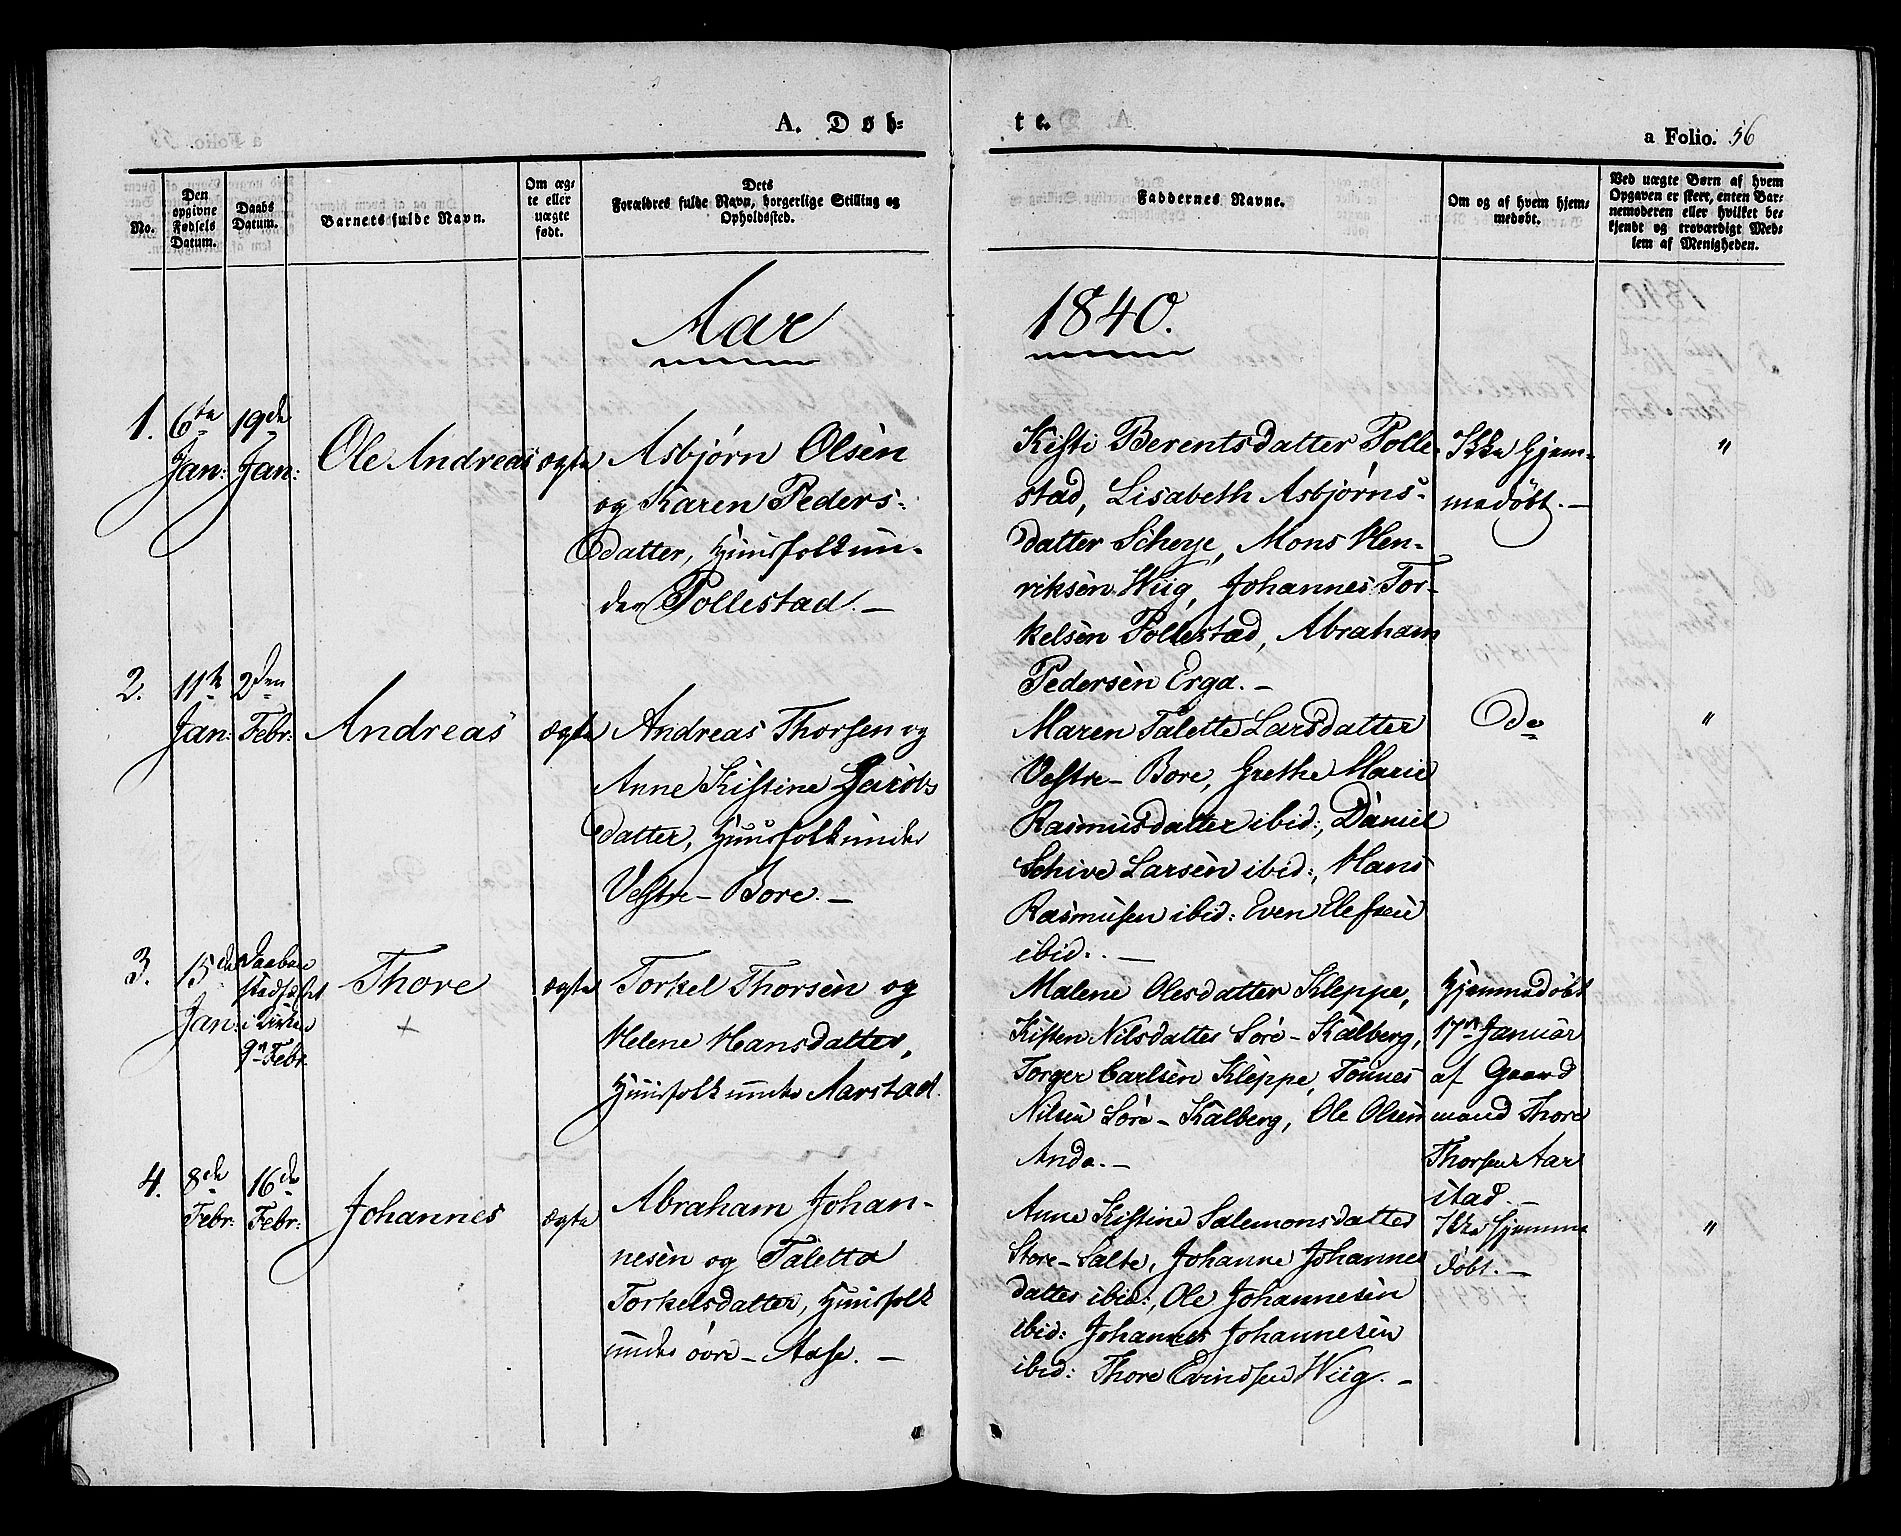 A. Døb-
te.
a Folio. 56
No.
Den opgivne Fødsels Datum.
Daabs Datum.
Barnets fulde Navn.
Om ægte eller uægte født.
Dets
Forældres fulde Navn, borgerlige Stilling og
Opholdssted.
Faddernes Navne.
Om og af hvem hjem-
medøbt.
Ved uægte Børn af hvem
Opgaven er skeet, enten Bar-
nemoderen eller hvilket be-
kjendt og troværdigt Med-
lem af Menigheden.
Aar
1840.
1.
6te
Jan:
19de
Jan:
Ole Andreas
ægte
Asbjørn Olsen
og Karen Peders-
datter, Huusfolk un-
der Pollestad. —
Kisti Berentsdatter Polle-
stad, Lisabeth Asbjørns-
datter Scheye, Mons Hen-
riksen Wiig, Johannes Tor-
kelsen Pollestad, Abraham
Pedersen Erga. —
Ikke hjem-
medøbt. —
"
2.
11te
Jan:
2den
Febr:
Andreas
ægte
Andreas Thorsen og
Anne Kistine Jacobs
datter, Huusfolk under
Vestre-Bore. —
Maren Talette Larsdatter
Vestre-Bore, Grethe Marie
Rasmusdatter ibid:, Daniel
Schive Larsen ibid:, Hans
Rasmusen ibid: Even Elefsen
ibid. —
Do
"
3.
15de
Jan:
Daaben
stadfæstet
i Kirken
9n Febr.
Thore
+
ægte
Torkel Thorsen og
Helene Hansdatter,
Huusfolk under Aarstad.
Malene Olesdatter Kleppe,
Kisten Nilsdatter Søre-Kalberg,
Torger Carlsen Kleppe, Tønnes
Nilsen Søre-Kalberg, Ole Olsen
Anda. —
Hjemmedøbt
17n Januar
af Gaard
mand Thore
Thorsen Aar
stad. —
4.
8de
Febr:
16de
Febr:
Johannes
ægte
Abraham Johan-
nesen og Taletta
Torkelsdatter, Huusfolk
under øvre-Aase. —
Anne Kistine Salemonsdatter
Store-Salte, Johanne Johannes
datter ibid:, Ole Johannesen
ibid: Johannes Johannesen
ibid: Thore Evindsen Wiig. —
Ikke hjemme
døbt. —
"